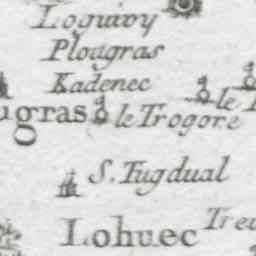 Loguivy
Plougras
Kadenec
ugras le Trogore
S. Tugdual
Lohuec